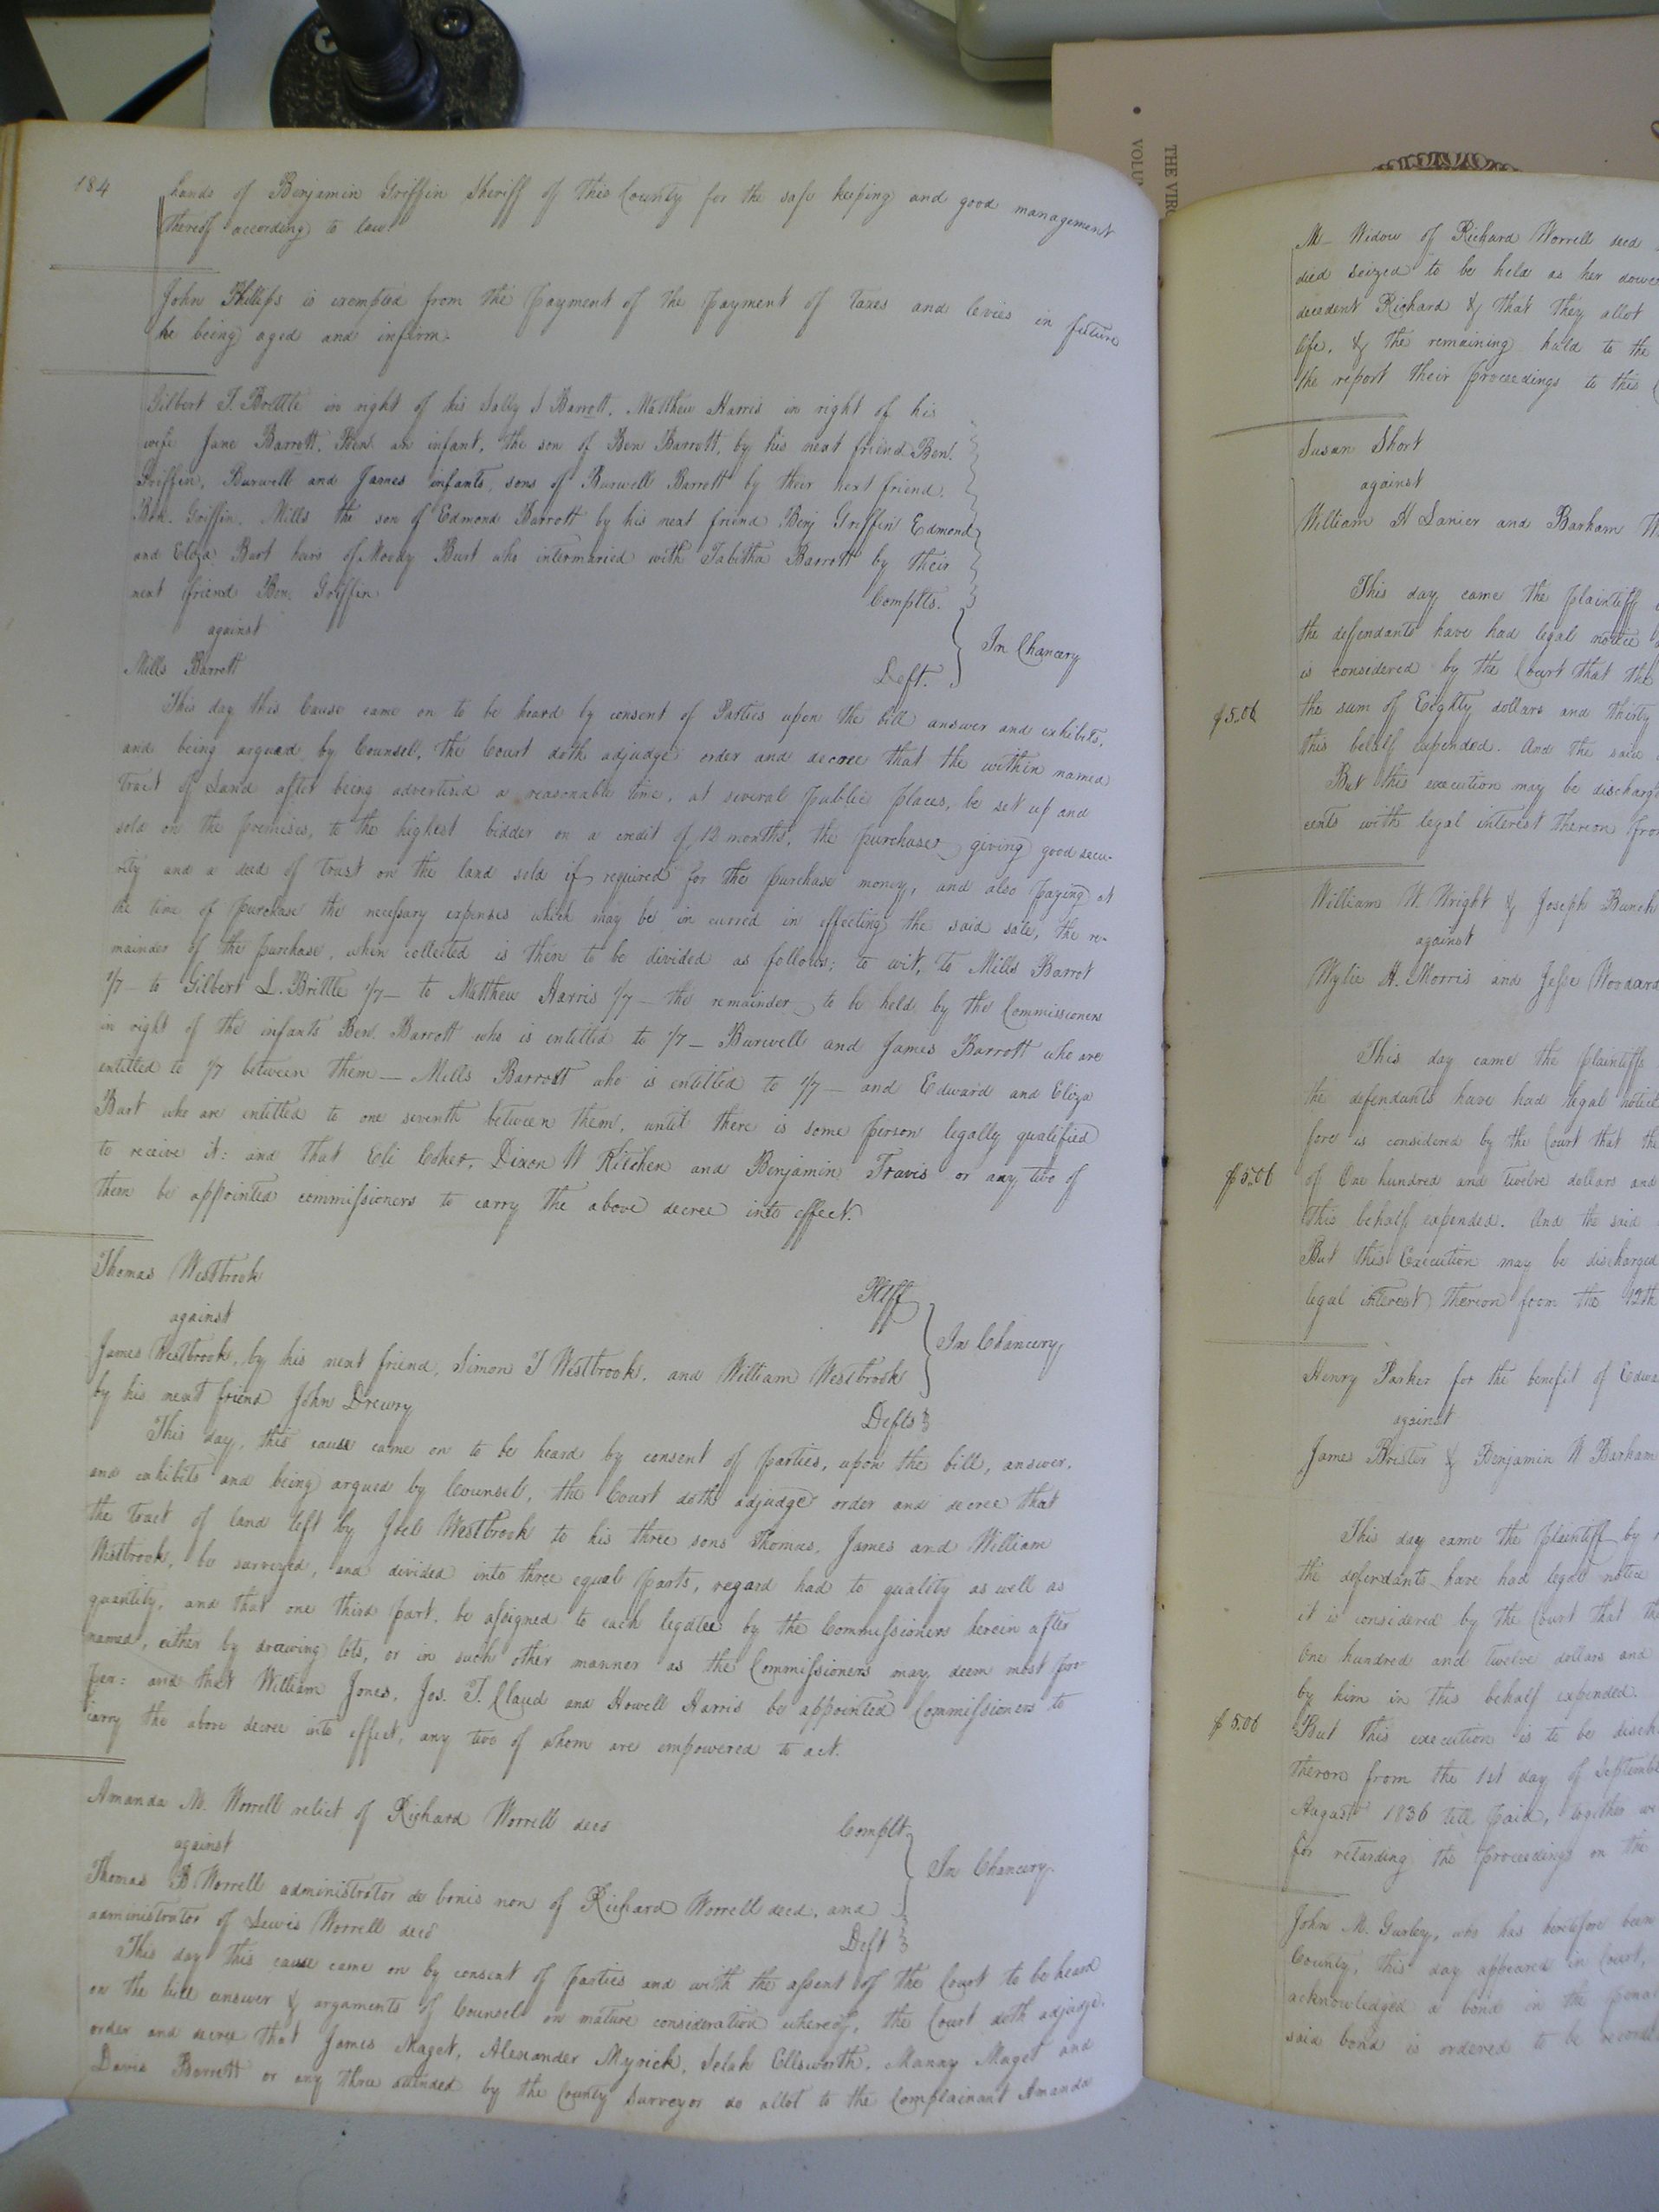 184
hands of Benjamin Griffin Sheriff of this County for the safe keeping and good management
thereof according to law.
John Phillips is exempted from the payment of the payment of taxes and levies in future
he being aged and infirm.
Gilbert T. Brittle in right of his Sally S Barrott, Matthew Harris in right of his
wife Jane Barrott, Ben. an infant, the son of Ben Barrott, by his next friend Ben.
Griffin, Burwell and James infants, sons of Burwell Barrott by their next friend,
Ben. Griffin, Mills the son of Edmond Barrott by his next friend Benj Griffin Edmond
and Eliza Burt heirs of Moody Burt who intermaried with Tabitha Barrott by their
next friend Ben. Griffin Complts.
against
In Chancery
Mills Barrott Deft.
This day this Cause came on to be heard by consent of Parties upon the bill answer and exhibits,
and being argued by Counsel, the Court doth adjudge order and decree that the within named
tract of Land after being advertised a reasonable time, at several public places, be set up and
sold on the premises, to the highest bidder on a credit of 12 months, the purchaser giving good secu-
rity and a deed of trust on the land sold if required for the purchase money, and also paying at
the time of purchase the necessary expenses which may be in curred in effecting the said sale, the re-
mainder of the purchase, when collected is then to be divided as follows; to wit, to Mills Barrot
1/7 — to Gilbert L. Brittle 1/7 — to Matthew Harris 1/7 — the remainder to be held by the Commissioners
in right of the infants Ben. Barrott who is entitled to 1/7 — Burwell and James Barrott who are
entitled to 1/7 between them — Mills Barrott who is entitled to 1/7 — and Edward and Eliza
Burt who are entitled to one seventh between them, until there is some person legally qualified
to receive it: and that Eli Coker, Dixon W Kitchen and Benjamin Travis or any two of
them be appointed commissioners to carry the above decree into effect.
Thomas Westbrook Pltff
against
In Chancery
James Westbrook, by his next friend, Simon T Westbrook, and William Westbrook
by his next friend John Drewry Defts
This day, this cause came on to be heard by consent of parties, upon the bill, answer,
and exhibits and being argued by Counsel, the Court doth adjudge order and decree that
the tract of land left by Joel Westbrook to his three sons Thomas, James and William
Westbrook, be surveyed, and divided into three equal parts, regard had to quality as well as
quantity, and that one third part, be assigned to each legatee by the Commissioners herein after
named, either by drawing lots, or in such other manner as the Commissioners may deem most pro-
per: and that William Jones, Jos. T. Claud and Howell Harris be appointed Commissioners to
carry the above decree into effect, any two of whom are empowered to act.
Amanda M. Worrell relict of Richard Worrell decd Complt
against
In Chancery
Thomas B Worrell administrator de bonis non of Richard Worrell decd, and
administrator of Lewis Worrell decd Deft
This day this cause came on by consent of parties and with the assent of the Court to be heard
on the bill answer & arguments of Counsel on mature consideration whereof, the Court doth adjudge
order and decree that James Maget, Alexander Myrick, Selah Ellsworth, Manny Maget and
Davis Barrett or any three attended by the County Surveyor do allot to the Complainant Amanda
THE VIRG
VOLU
M Widow of Richard Worrell decd
died seized to be held as her dower
decedent Richard & that they allot
life, & the remaining held to the
the report their proceedings to this
Susan Short
against
William H Lanier and Barham
This day came the plaintiff
the defendants have had legal notice
is considered by the Court that the
$5.06 the sum of Eighty dollars and thirty
this behalf expended. And the said
But this execution may be discharg
cents with legal interest thereon from
William W. Wright & Joseph Bunch
against
Wylie H. Morris and Jesse Woodard
This day came the plaintiffs
the defendants have had legal notice
fore is considered by the Court that the
$5.06 of One hundred and twelve dollars and
this behalf expended. And the said
But this Execution may be discharged
legal interest thereon from the 12th
Henry Parker for the benefit of Edw
against
James Brister & Benjamin W Barham
This day came the plaintiff by
the defendants have had legal notice
it is considered by the Court that the
One hundred and twelve dollars and
by him in this behalf expended.
$5.06 But this execution is to be disch
thereon from the 1st day of Septemb
August 1836 till paid, together wi
for retarding the proceedings on the
John M. Gurley, who has heretofore been
County, this day appeared in Court,
acknowledged a bond in the penal
said bond is ordered to be record